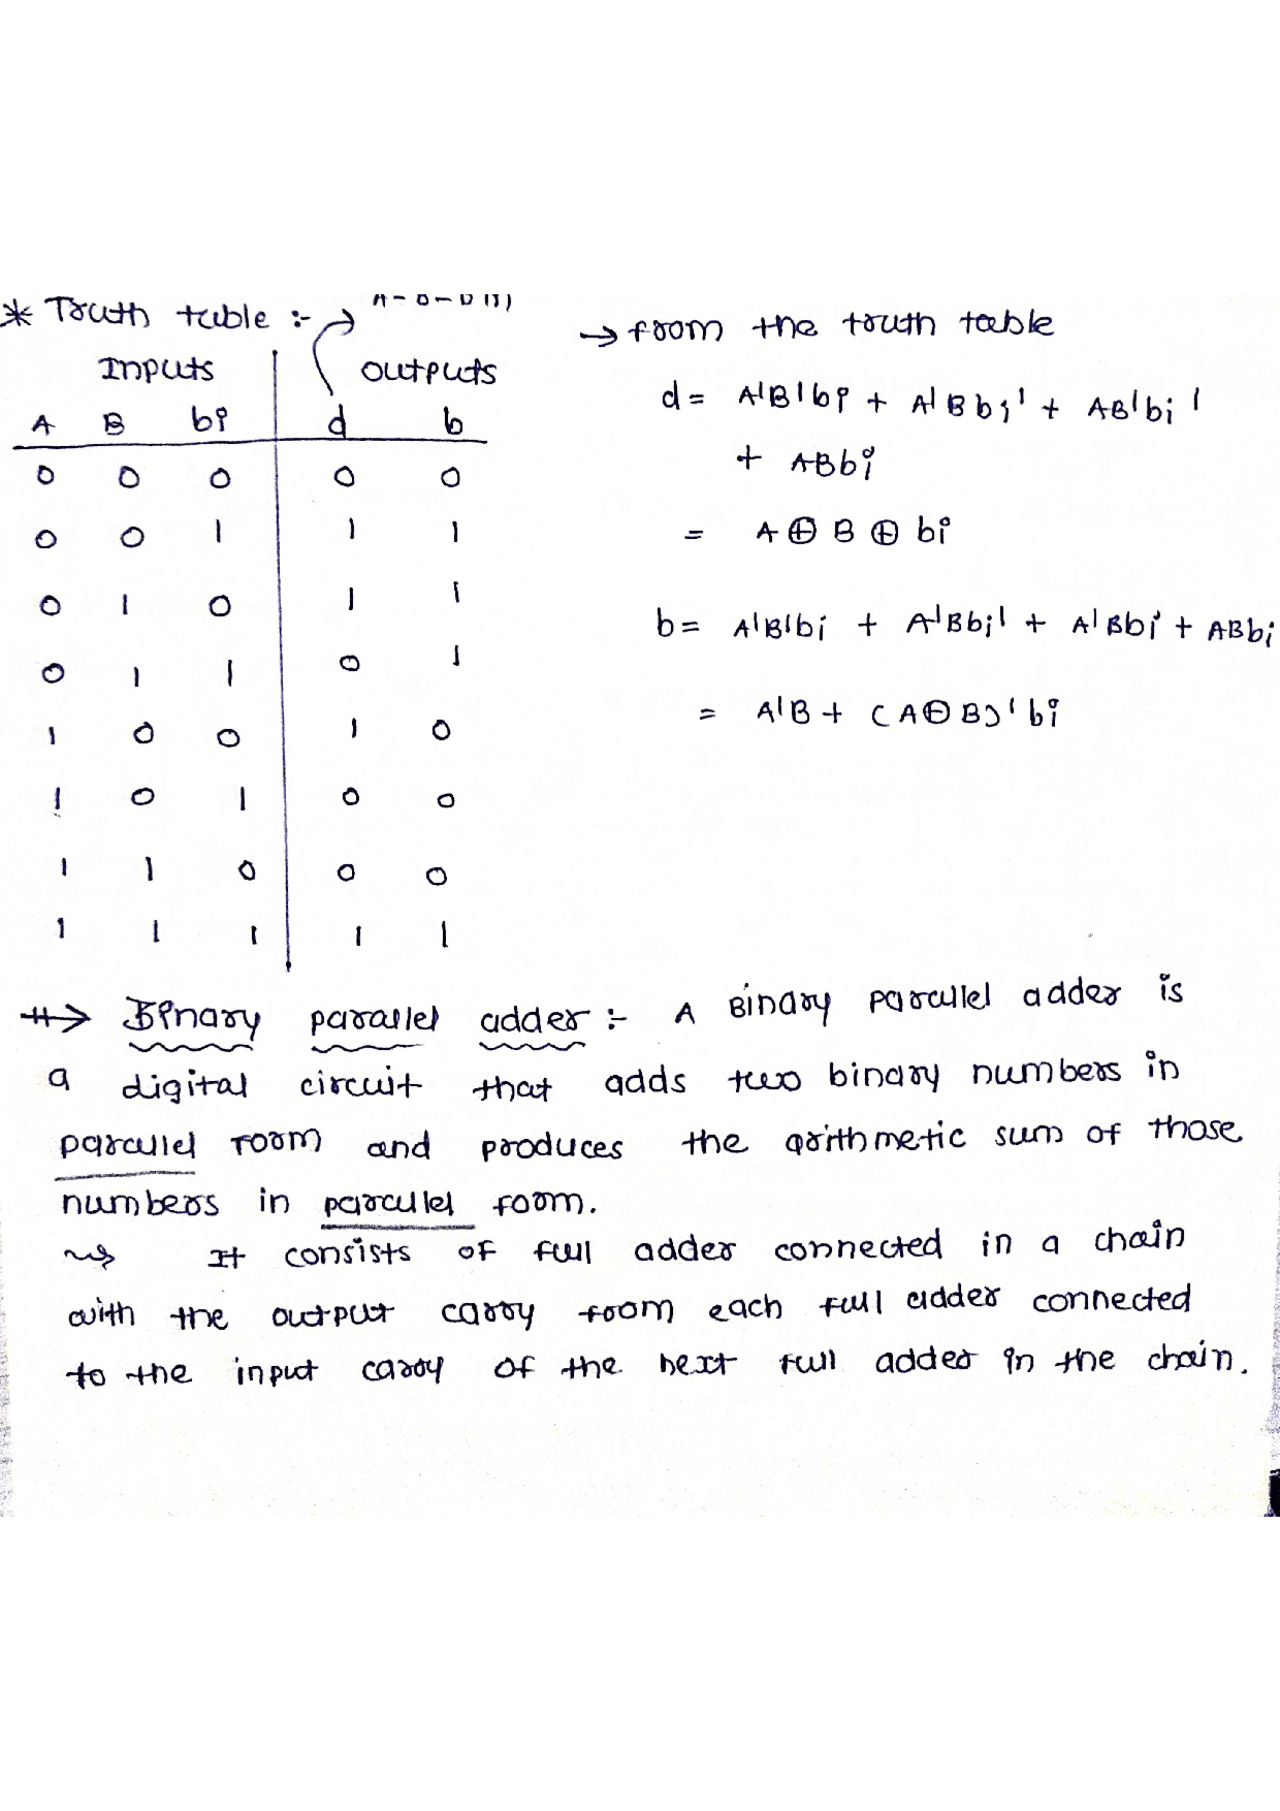 * Truth table :-
Inputs outputs
A B bi d b
0 0 0 0 0
0 0 1 1 1
0 1 0 1 1
0 1 1 0 1
1 0 0 1 0
1 0 1 0 0
1 1 0 0 0
1 1 1 1 1
→ from the truth table
d = A'B'bi + A'Bbi' + AB'bi'
+ ABbi
= A ⊕ B ⊕ bi
b = A'B'bi + A'Bbi' + A'Bbi + ABbi
= A'B + (A⊕B)'bi
Binary parallel adder :- A Binary parallel adder is
a digital circuit that adds two binary numbers in
parallel form and produces the arithmetic sum of those
numbers in parallel form.
It consists of full adder connected in a chain
with the output carry from each full adder connected
to the input carry of the next full adder in the chain.